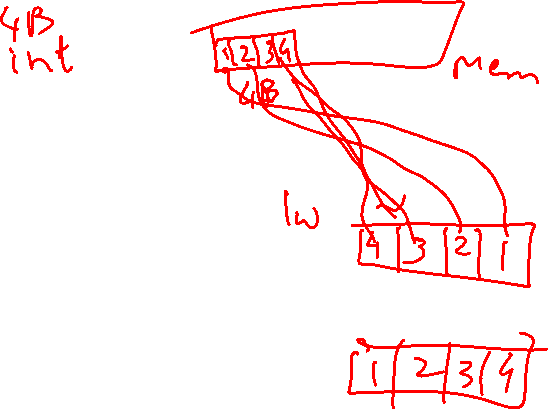 4B
int
1 2 3 4
Mem
4B
lw
4 3 2 1
1 2 3 4